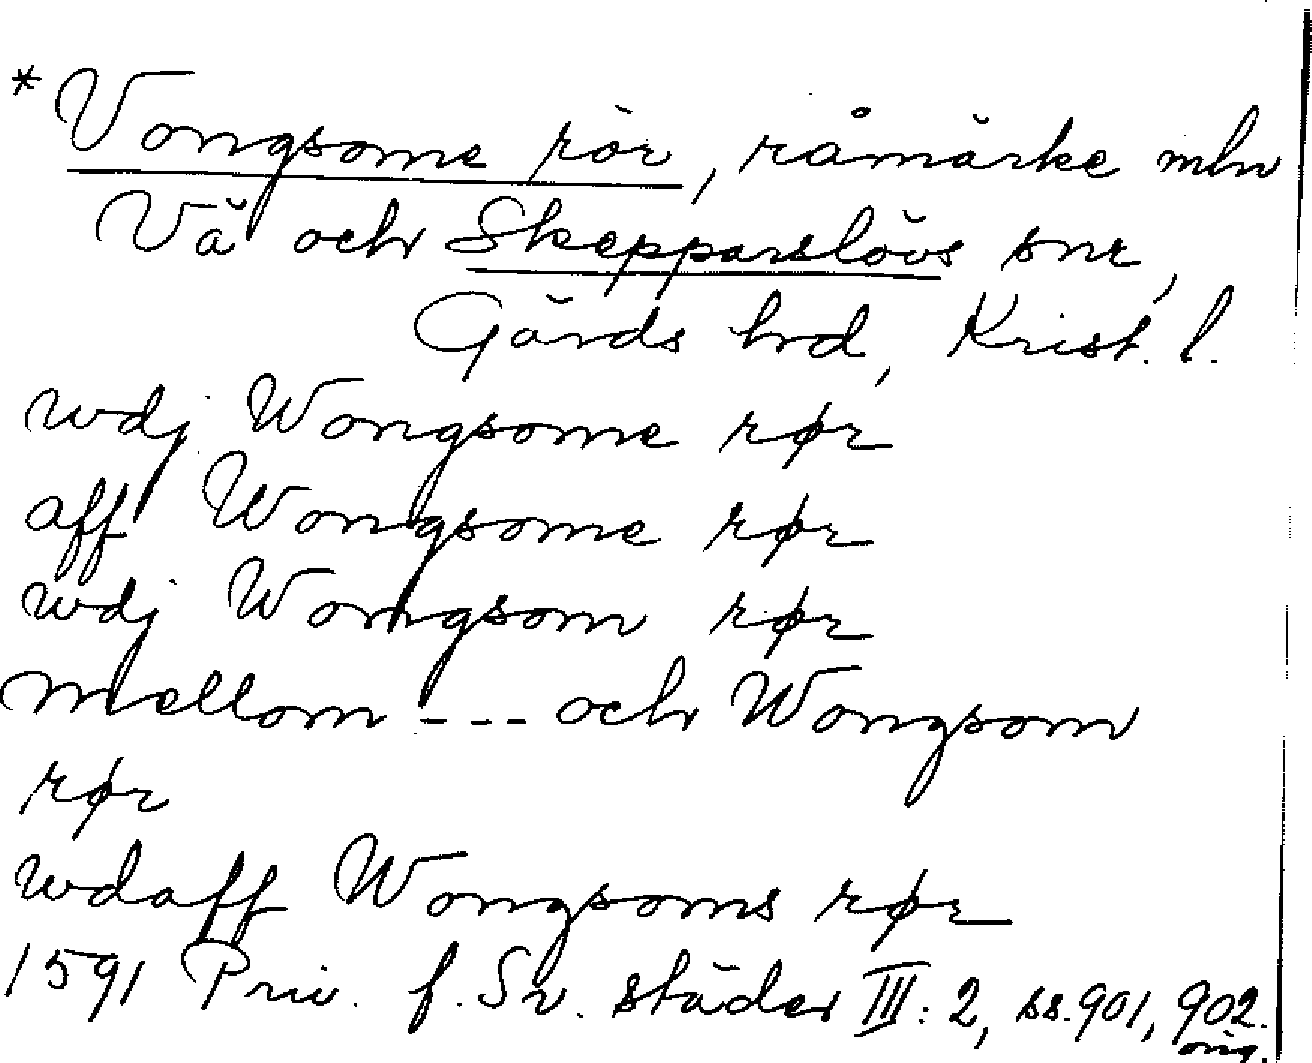 *Vongsome rör, råmärke mln
Vä och Skepparslövs snr,
Gärds hd, Krist. l.
wdj Wongsome rør
aff Wongsome rør
wdj Wongsom rør
mellom --- och Wongsom
rør
wdaff Wongsoms rør
1591 Priv. f. Sv. städer III: 2, ss. 901, 902.
orig.